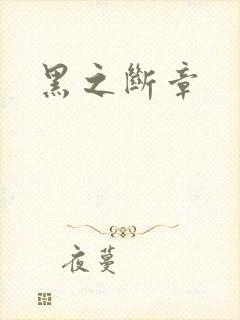 黑之斷章
夜蔓